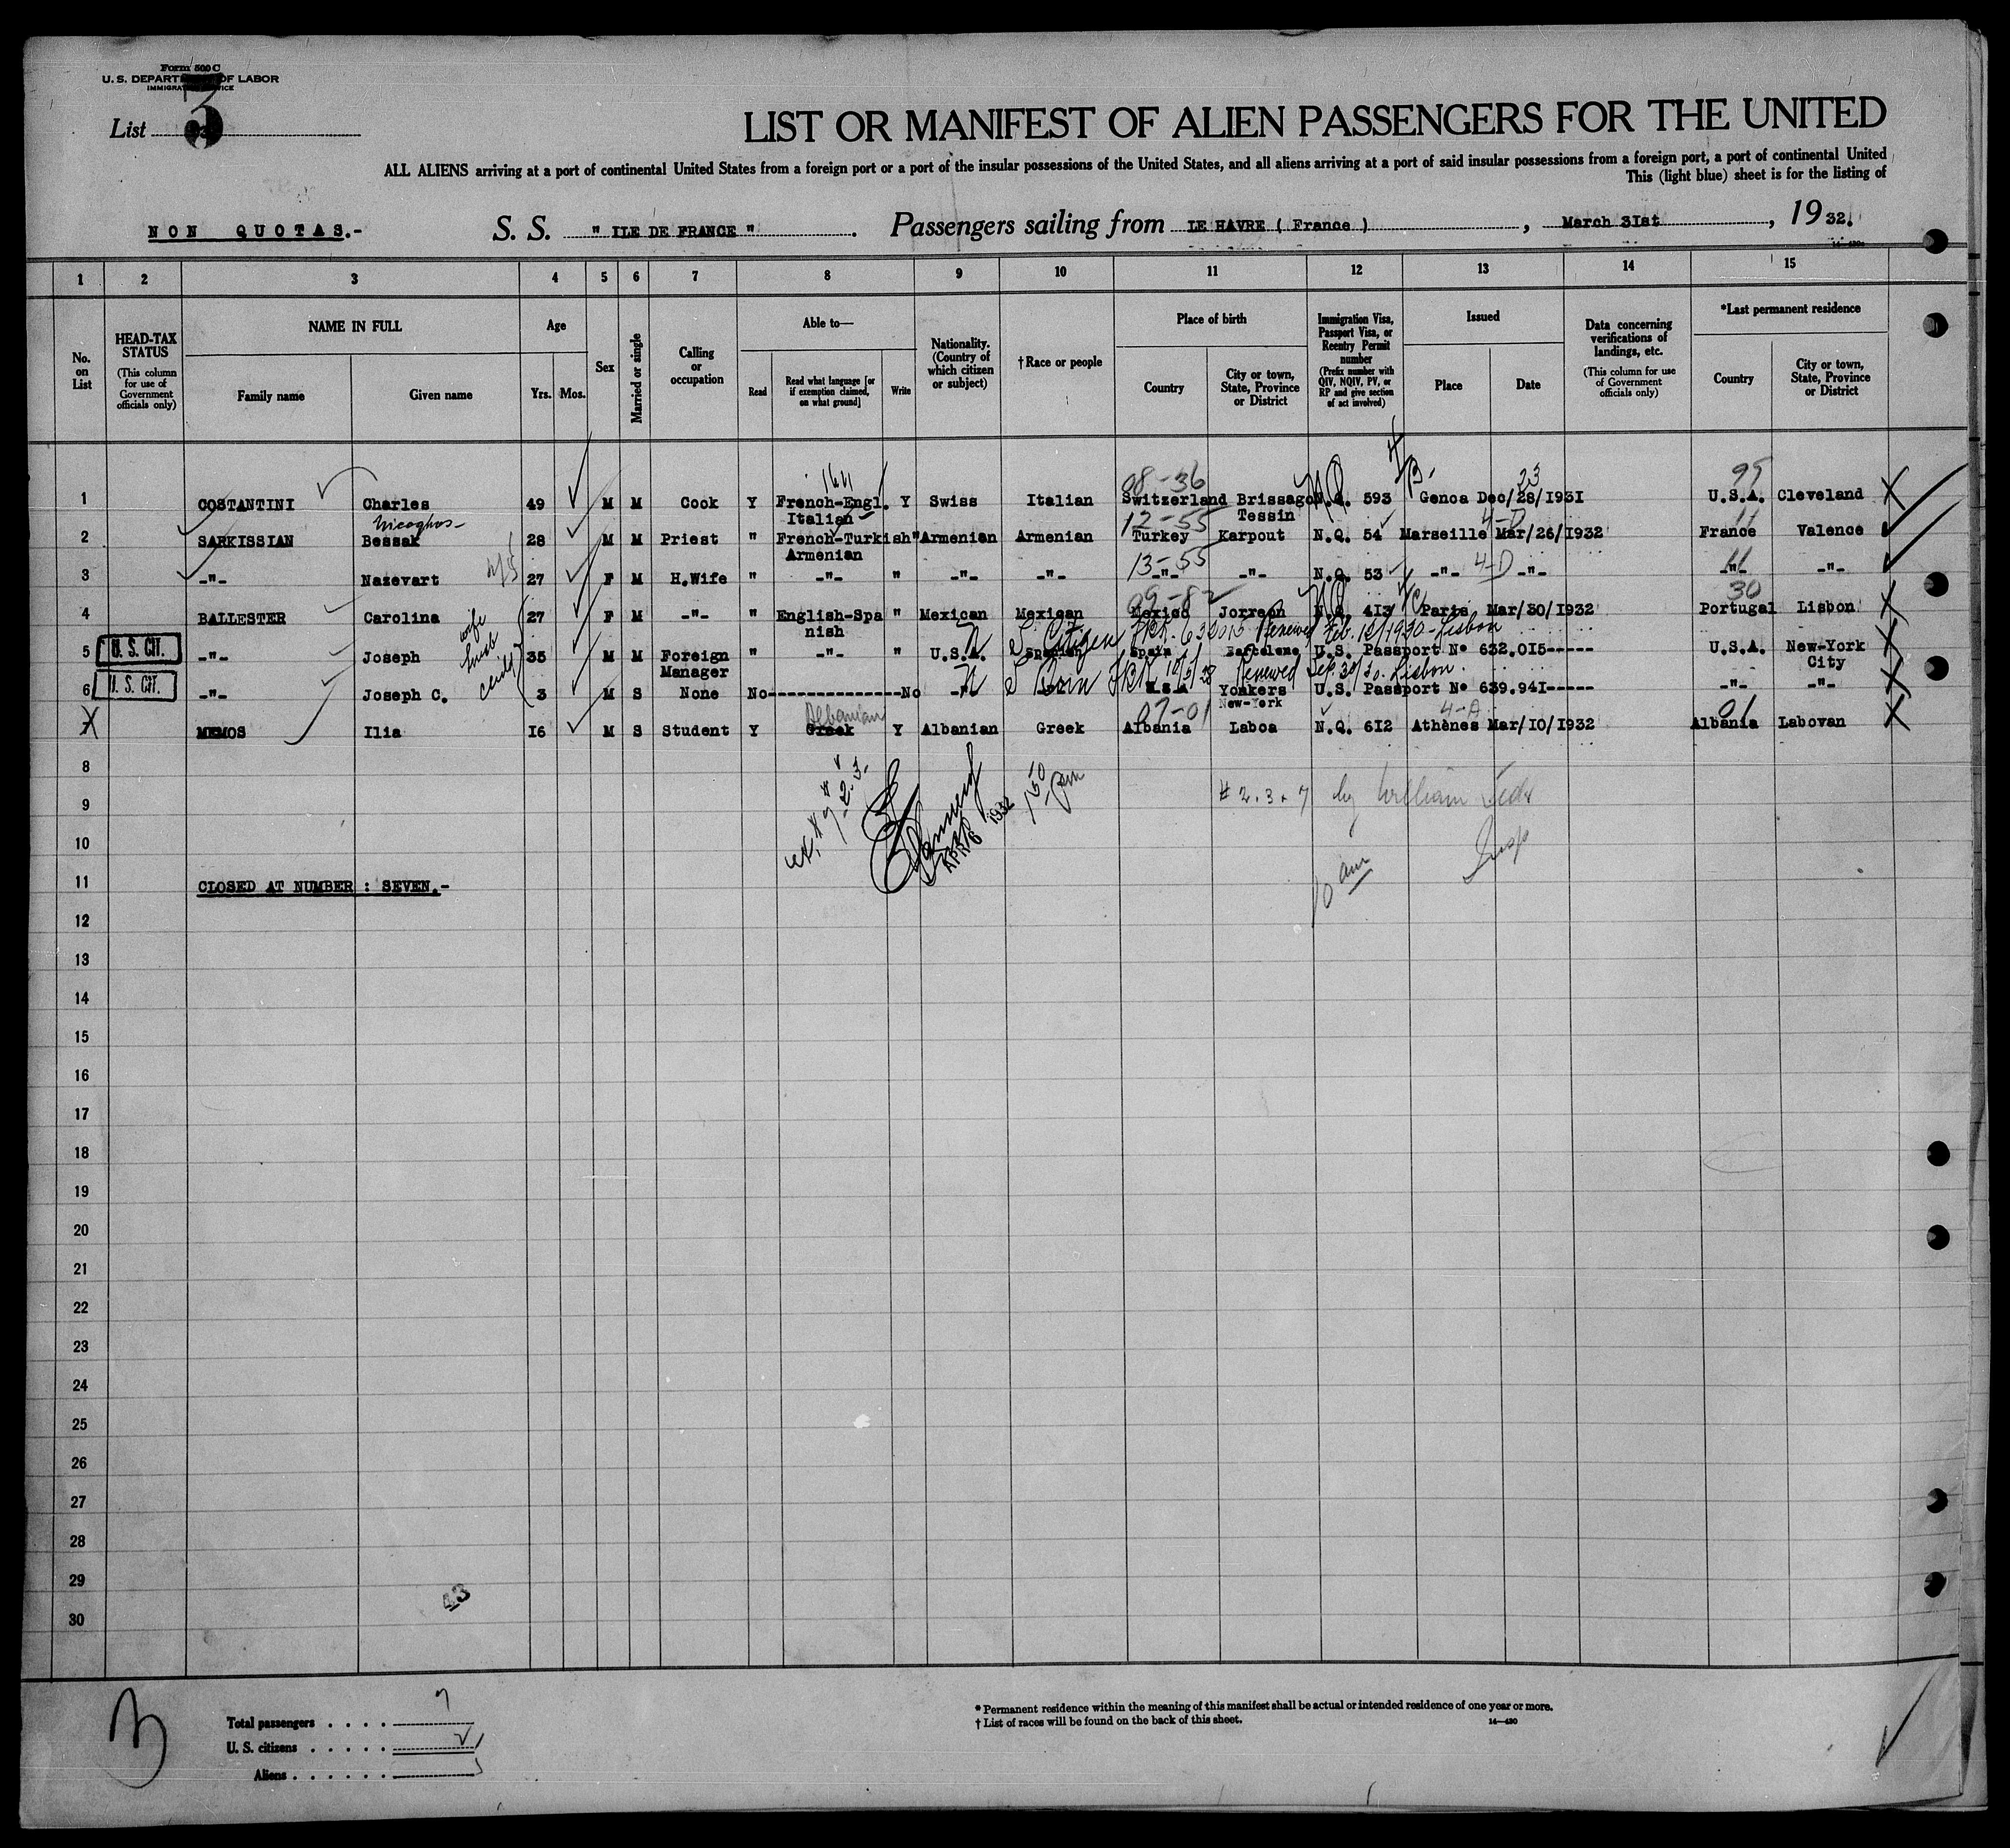 Form 500 C
U. S. DEPARTMENT OF LABOR
IMMIGRATION SERVICE
List 3
LIST OR MANIFEST OF ALIEN PASSENGERS FOR THE UNITED
ALL ALIENS arriving at a port of continental United States from a foreign port or a port of the insular possessions of the United States, and all aliens arriving at a port of said insular possessions from a foreign port, a port of continental United
This (light blue) sheet is for the listing of
NON QUOTAS.- S. S. " ILE DE FRANCE ". Passengers sailing from LE HAVRE ( France ), March 3Ist, 1932.
1 2 3 4 5 6 7 8 9 10 11 12 13 14 15
No. on List
HEAD-TAX STATUS (This column for use of Government officials only)
NAME IN FULL
Family name Given name
Age
Yrs. Mos.
Sex
Married or single
Calling or occupation
Able to—
Read Read what language [or if exemption claimed, on what ground] Write
Nationality. (Country of which citizen or subject)
†Race or people
Place of birth
Country City or town, State, Province or District
Immigration Visa, Passport Visa, or Reentry Permit number (Prefix number with QIV, NQIV, PV, or RP and give section of act involved)
Issued
Place Date
Data concerning verifications of landings, etc. (This column for use of Government officials only)
*Last permanent residence
Country City or town, State, Province or District
08-36 4 B 23 99
1 COSTANTINI Charles 49 M M Cook Y French-Engl. Y Swiss Italian Switzerland Brissago N.Q. 593 Genoa Dec/28/I93I U.S.A. Cleveland
Italian Tessin
Nicoghos- 12-55 4-D
2 SARKISSIAN Bessak 28 M M Priest " French-Turkish" Armenian Armenian Turkey Karpout N.Q. 54 Marseille Mar/26/I932 France Valence
Armenian
13-55 4-D
3 -"- Nazevart 27 F M H.Wife " -"- " -"- -"- -"- -"- N.Q. 53 -"- -"- -"- -"-
09-82 30
4 BALLESTER Carolina wife 27 F M -"- " English-Spa " Mexican Mexican Mexico Jorreon N.Q. 4I3 Paris Mar/30/I932 Portugal Lisbon
nish
Citizen 632015 Renewed Feb. 12/1930-Lisbon
5 U. S. CIT. -"- Joseph 35 M M Foreign " -"- " U.S.A. Spanish Spain Barcelone U.S. Passport Nº 632.0I5----- U.S.A. New-York
Manager City
Born Renewed Sep. 30/30. Lisbon.
6 U. S. CIT. -"- Joseph C. child 3 M S None No---------------No -"- U.S.A Yonkers U.S. Passport Nº 639.94I----- -"- -"-
New-York
Albanian 07-01 4-D 01
7 MEMOS Ilia I6 M S Student Y Greek Y Albanian Greek Albania Laboa N.Q. 6I2 Athènes Mar/I0/I932 Albania Labovan
8
9 # 2. 3 + 7 by William
APR 6 1932
10
10 am Insp
11 CLOSED AT NUMBER : SEVEN.-
12
13
14
15
16
17
18
19
20
21
22
23
24
25
26
27
28
29
30
3
Total passengers . . . . 7
U. S. citizens . . . . . 2
Aliens . . . . . . 5
* Permanent residence within the meaning of this manifest shall be actual or intended residence of one year or more.
† List of races will be found on the back of this sheet. 14—430